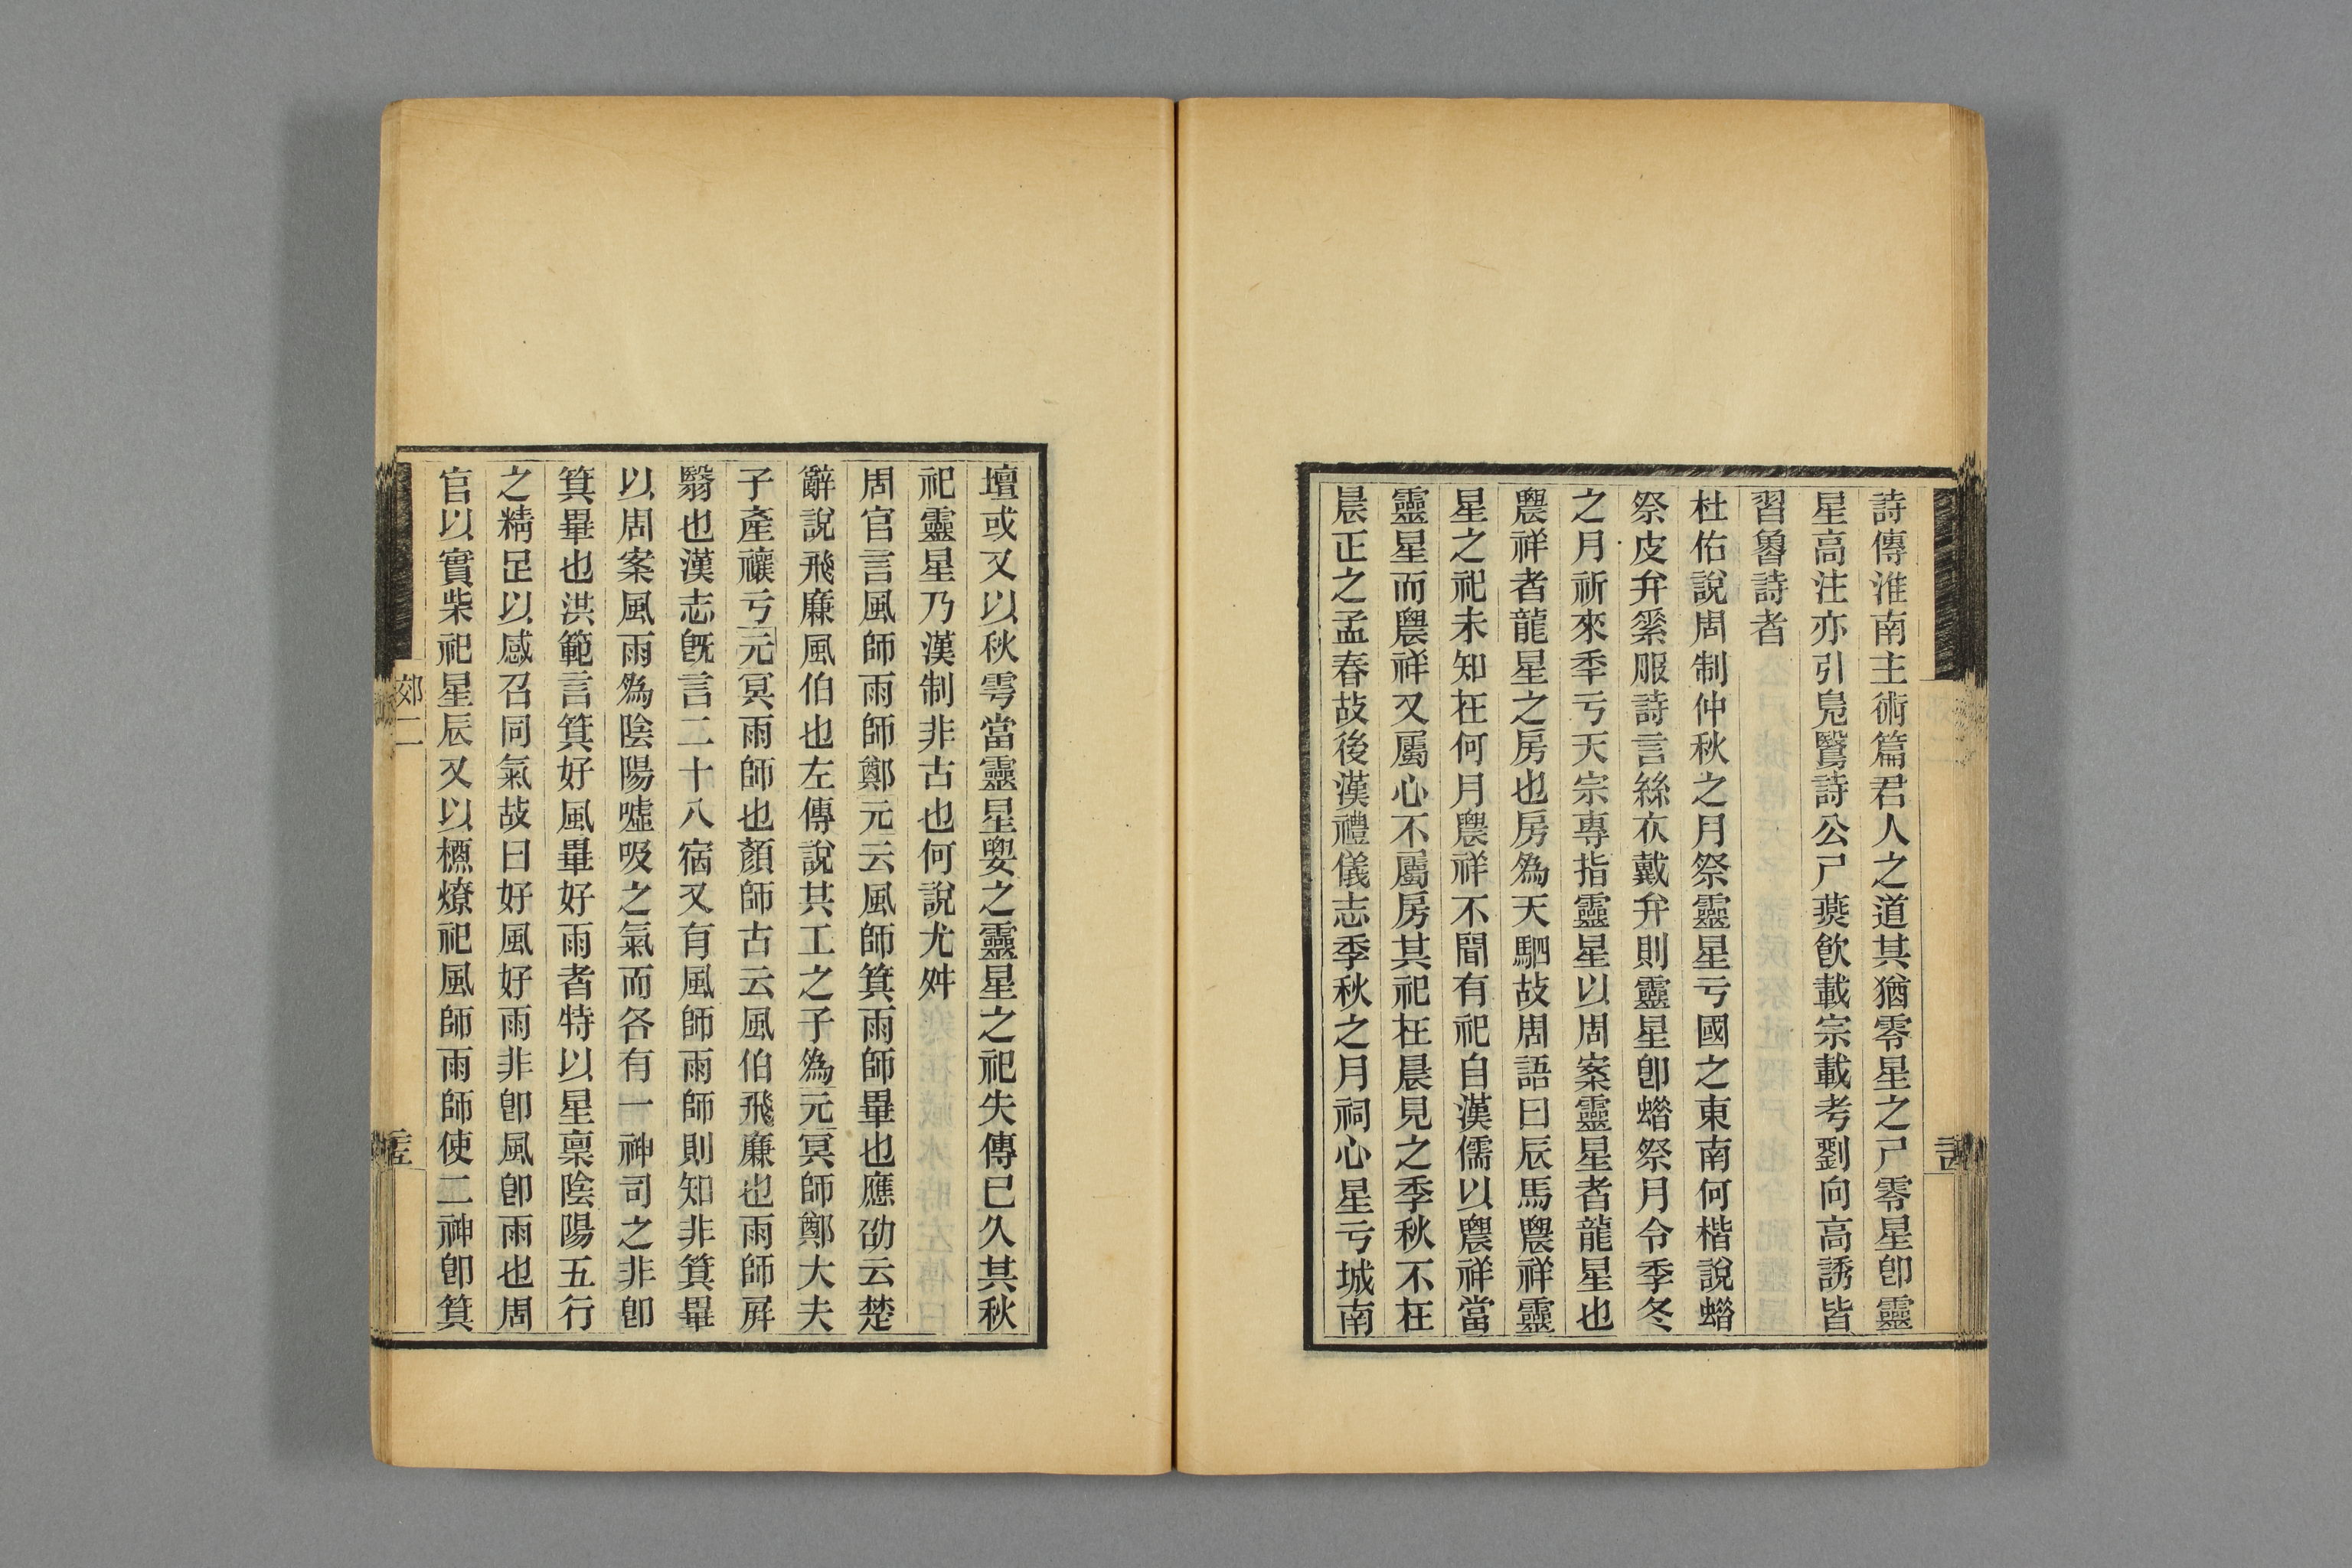 詩傳淮南主術篇君人之道其猶零星之尸零星卽靈
星高注亦引鳧鷖詩公尸燕飮載宗載考劉向高誘皆
習魯詩者
杜佑說周制仲秋之月祭靈星亏國之東南何楷說蜡
祭皮弁𥿄服詩言絲衣戴弁則靈星卽蜡祭月令季冬
之月祈來秊亏天宗專指靈星以周案靈星者龍星也
農祥者龍星之房也房爲天駟故周語曰辰馬農祥靈
星之祀未知在何月農祥不聞有祀自漢儒以農祥當
靈星而農祥又屬心不屬房其祀在晨見之季秋不在
晨正之孟春故後漢禮儀志季秋之月祠心星亏城南
壇或又以秋雩當靈星要之靈星之祀失傳已久其秋
祀靈星乃漢制非古也何說尤舛
周官言風師雨師鄭元云風師箕雨師畢也應劭云楚
辭說飛廉風伯也左傳說其工之子爲元冥師鄭大夫
子產禳亏元冥雨師也顏師古云風伯飛廉也雨師屛
翳也漢志旣言二十八宿又有風師雨師則知非箕畢
以周案風雨爲陰陽噓吸之氣而各有一神司之非卽
箕畢也洪範言箕好風畢好雨者特以星稟陰陽五行
之精足以感召同氣故曰好風好雨非卽風卽雨也周
官以實柴祀星辰又以槱燎祀風師雨師使二神卽箕
郊二